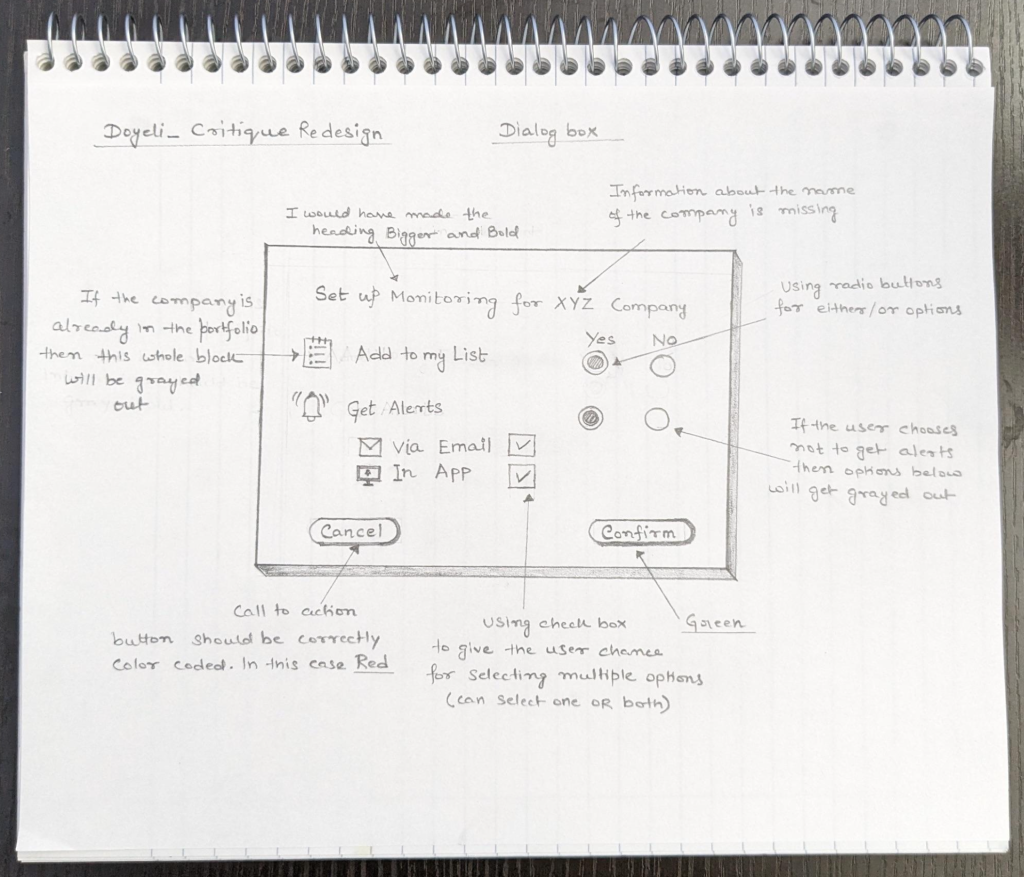 Doyeli_ Critique Redesign
Dialog box
Information about the name
of the company is missing
I would have made the
heading Bigger and Bold
Using radio buttons
for either/or options
If the company is
already in the portfolio
then this whole block
will be grayed
out
Set up Monitoring for XYZ Company
Yes No
Add to my List
Get Alerts
Via Email
In App
If the user chooses
not to get alerts
then options below
will get grayed out
Cancel
Confirm
Call to action
button should be correctly
color coded. In this case Red
Using check box
to give the user chance
for selecting multiple options
(can select one OR both)
Green